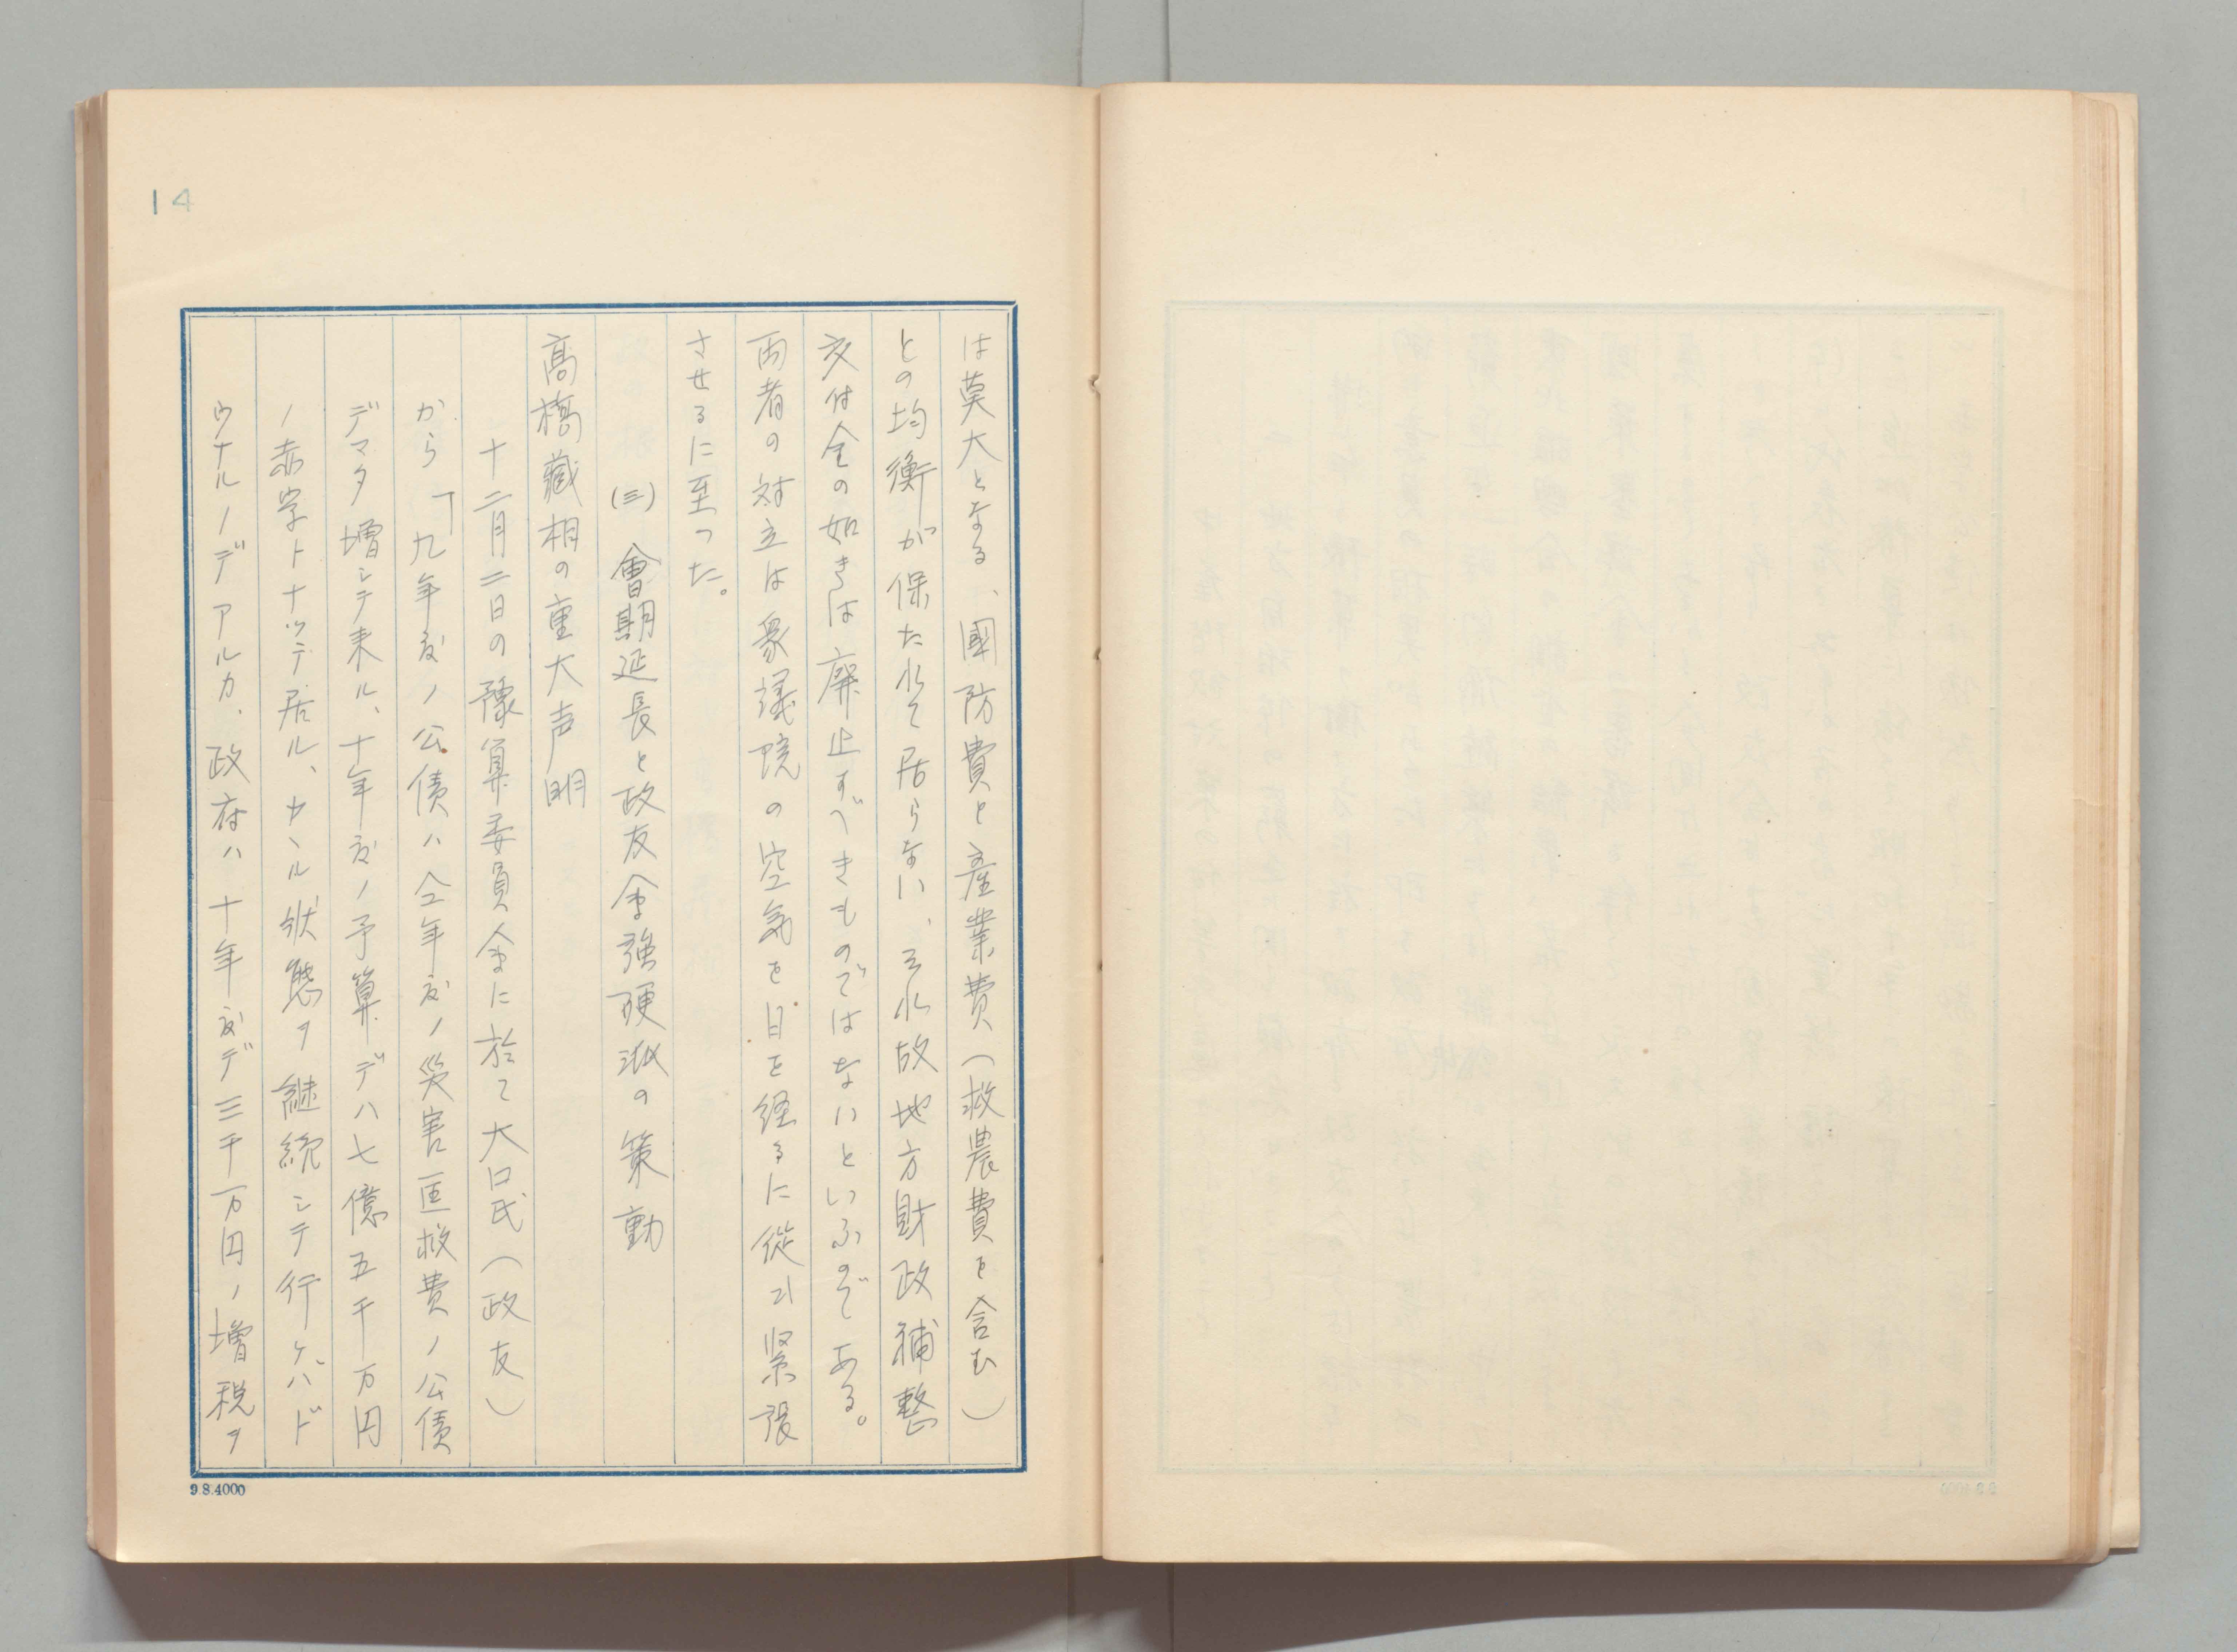 14
は莫大となる、國防費と産業費（救農費を含む）
との均衡が保たれて居らない、それ故地方財政補整
交付金の如きは廃止すべきものではないといふのである。
両者の対立は衆議院の空気を日を経るに從ひ緊張
させるに至った。
(三) 會期延長と政友会強硬派の策動
高橋藏相の重大声明
十二月二日の豫算委員会に於て大口氏（政友）
から「九年度ノ公債ハ今年度ノ災害匡救費ノ公債
デマタ増シテ来ル、十年度ノ予算デハ七億五千万円
ノ赤字トナッテ居ル、カヽル状態ヲ継続シテ行ケバド
ウナルノデアルカ、政府ハ十年度デ三千万円ノ増税ヲ
9.8.4000